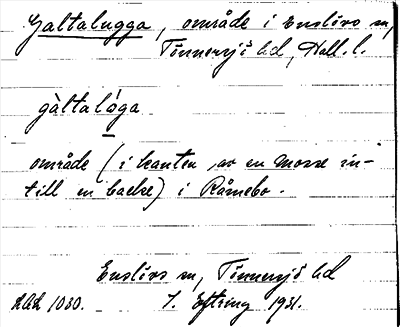 Galtalugga, område i Enslövs sn,
Tönnersjö hd, Hall. l.
gàltalóga
område (i kanten av en mosse in-
till en backe) i Råmebo.
Enslövs sn, Tönnersjö hd
1030. 1931.